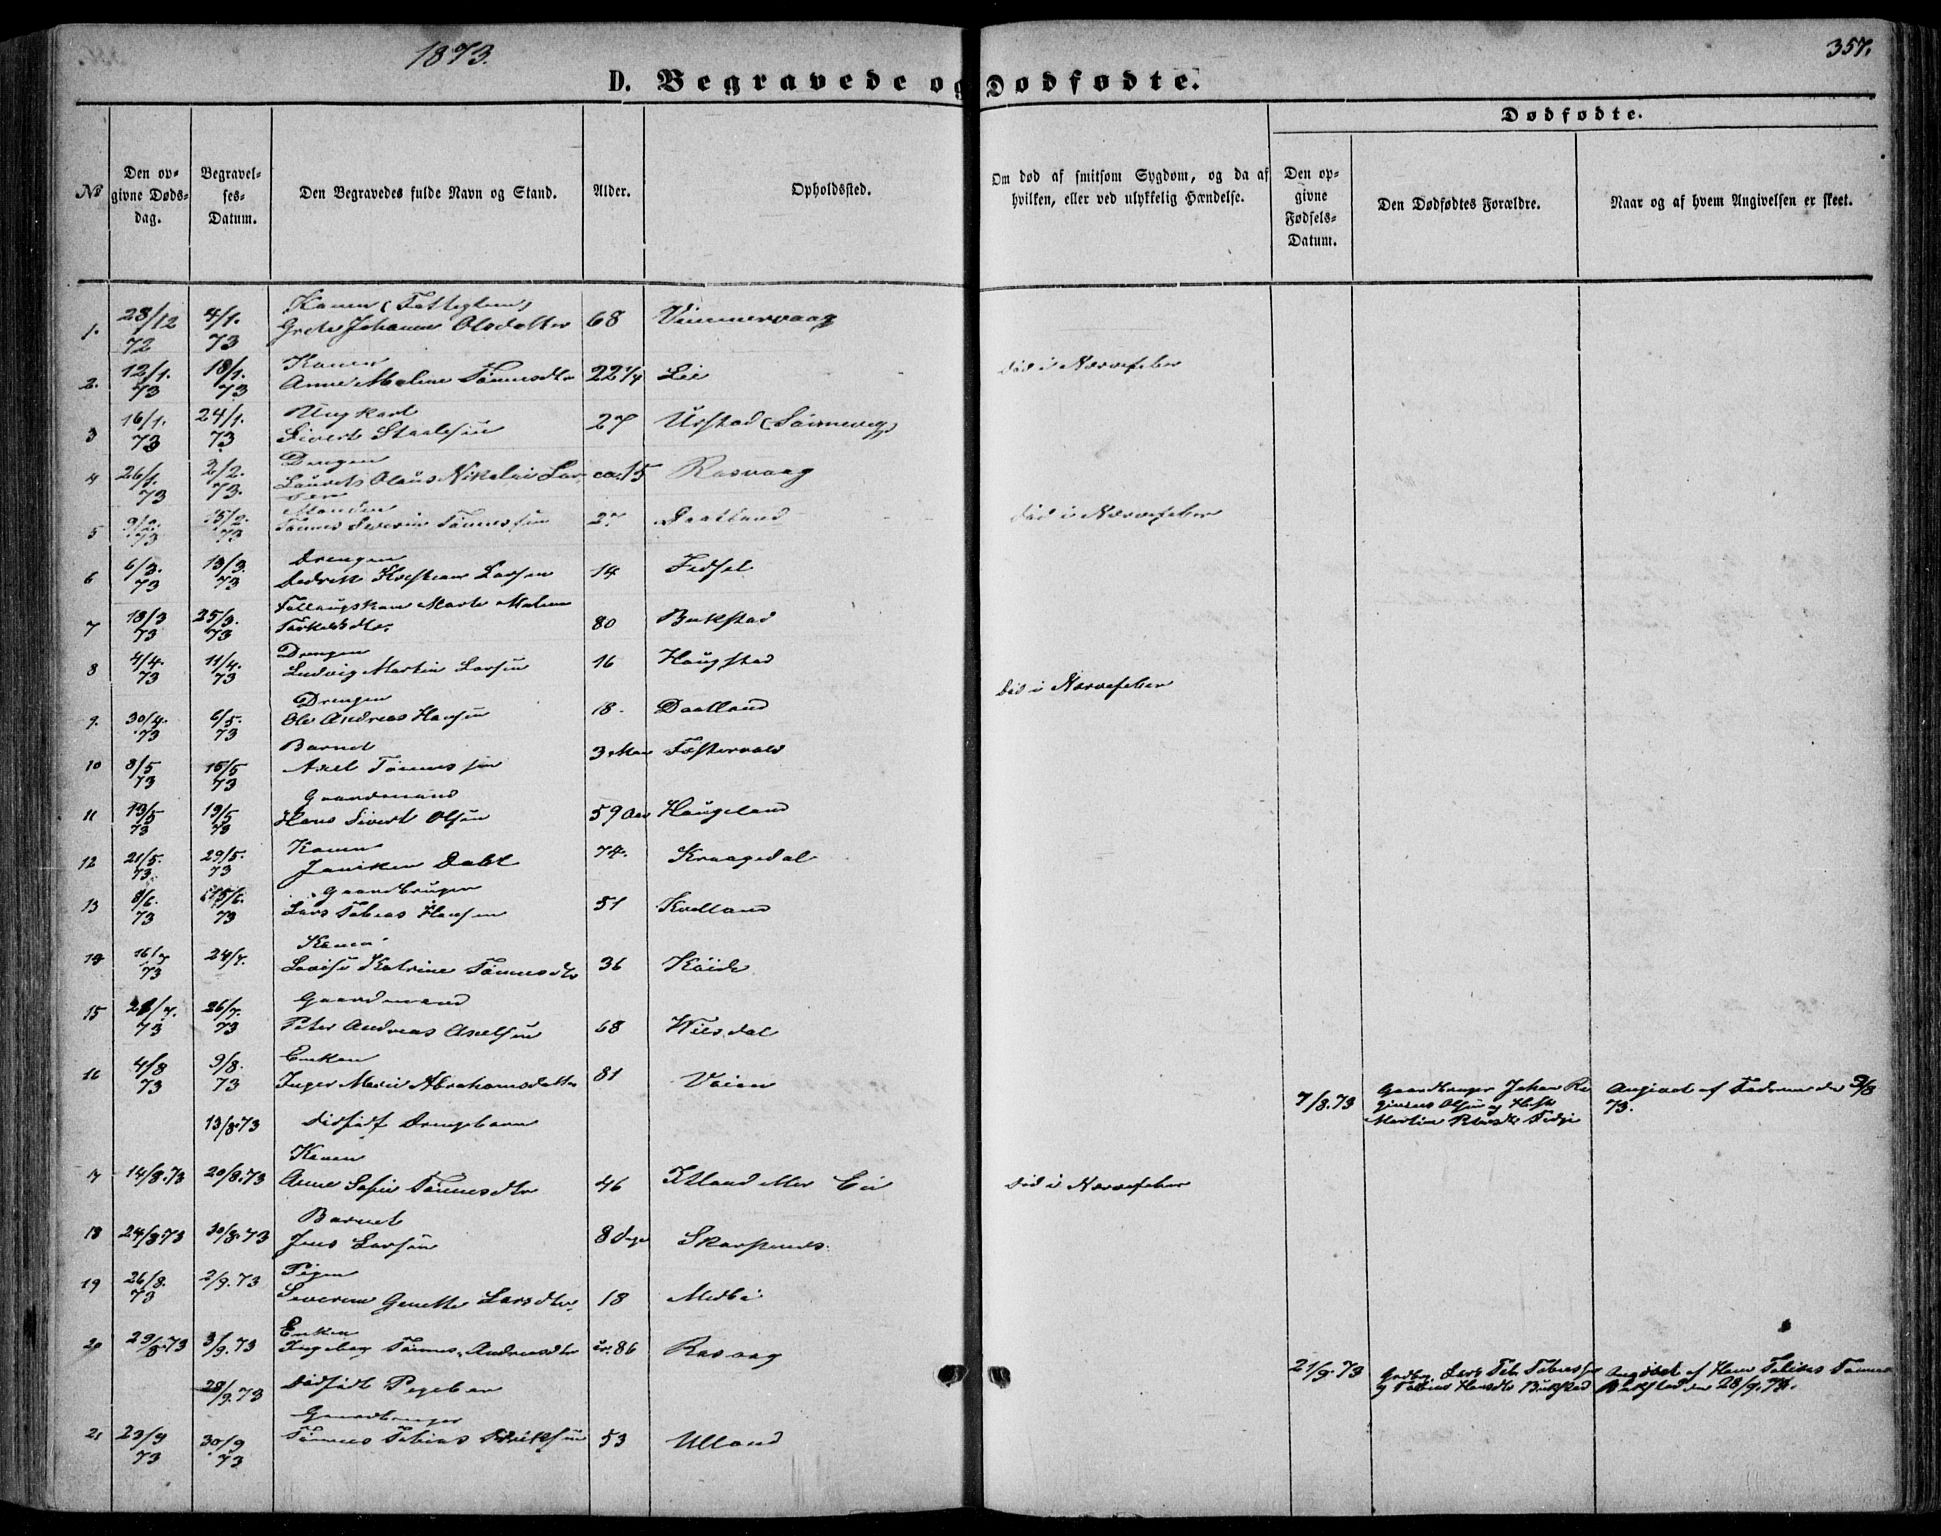 1873.
357.
D. Begravede og Dødfødte.
Dødfødte.
No
Den op-
givne Døds-
dag.
Begravel-
ses-
Datum.
Den Begravedes fulde Navn og Stand.
Alder.
Opholdssted.
Om død af smitsom Sygdom, og da af
hvilken, eller ved ulykkelig Hændelse.
Den op-
givne
Fødsels-
Datum.
Den Dødfødtes Forældre.
Naar og af hvem Angivelsen er skeet.
Konen
1. 28/12 72 4/1. 73 Grete Johanne Olsdatter 68
Konen
2. 12/1. 73 18/1. 73 Anne Malene Tønnesdtr 22 1/4 Lie død i Nervefeber
Ungkarl
3 16/1. 73 24/1. 73 Sivert Staalesen 27 Urstad
Drengen
4 26/1. 73 2/2. 73. Laurits Olaus Nikolai Lar- ca. 15 Rasvaag
sen
Manden
5 9/2. 73 15/2. 73 Tønnes Severin Tønnessen 27 Daatland død i Nervefeber
Drengen
6 6/3. 73 13/3. 73 Kristian Larsen 14 Fedsel
Marte Malene
7 18/3 73 25/3. 73 Torkelsdtr. 80 Bukstad
Drengen
8 4/4. 73 11/4. 73 Ludvig Martin Larsen 16 Haugstad død i Nervefeber
Drengen
9. 30/4. 73 6/5. 73 Ole Andreas Hansen 18. Daatland
Barnet
10 8/5 73 15/5 73 Axel Tønnessen 3 Maa
Gaardmand
11 13/5 73 19/5 73 Hans Sivert Olsen 59 Aar Haugeland
Konen
12 21/5. 73 29/5. 73 Janiken Dahl 74. Kraagedal
Gaardbruger
13 8/6. 73 15/6. 73 Lars Tobias Hansen 51 Kvelland
Konen
14 16/7 73 24/7. Lovise Katrine Tønnesdtr 36
Gaardmand
15 73 26/7. 73 Peter Andreas Axelsen 68
Enken
16 4/8 73 9/8. 73 Inger Marie Abrahamsdatter 81 Vaien
13/8. 73 dødfødt Drengebarn 7/8. 73 Gaardbruger Johan Re-
ginius Olsen og Hustr
Martine Angivet af Faderen den 9/8
73.
Konen
17 14/8. 73 20/8. 73 Anne Sofie Tønnesdtr 46 død i Nervefeber
Barnet
18 24/8 73 30/8. 73 Jens Larsen 8 dage
Pigen
19 26/8. 73 2/9. 73 Severine Larsdtr. 18
Enken
20 29/8 73 3/9. 73 Ingeborg Tønnes. Andreasdtr 86 Rasvaag
28/9. 73 dødfødt Pigebarn 21/9. 73 Lars Tob. Tobiassen
Hansdtr Bukstad Angivet af Hans Tobias Tønnes
Bukstad den 28/9. 73.
Gaardbruger
21 23/9 73 30/9 73 Tønnes Tobias 53 Ulland